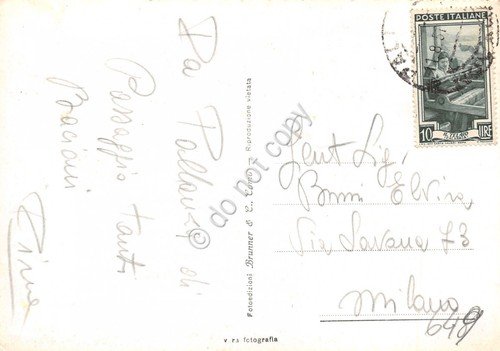 Da Pallanza di
Passaggio tanti
Bacioni
Rina
POSTE ITALIANE
10 LIRE
Gent Sig.
Elvira
Via Savona 73
Milano
649
Fotoedizioni Brunner & C., Como - Riproduzione vietata
vera fotografia
do not copy